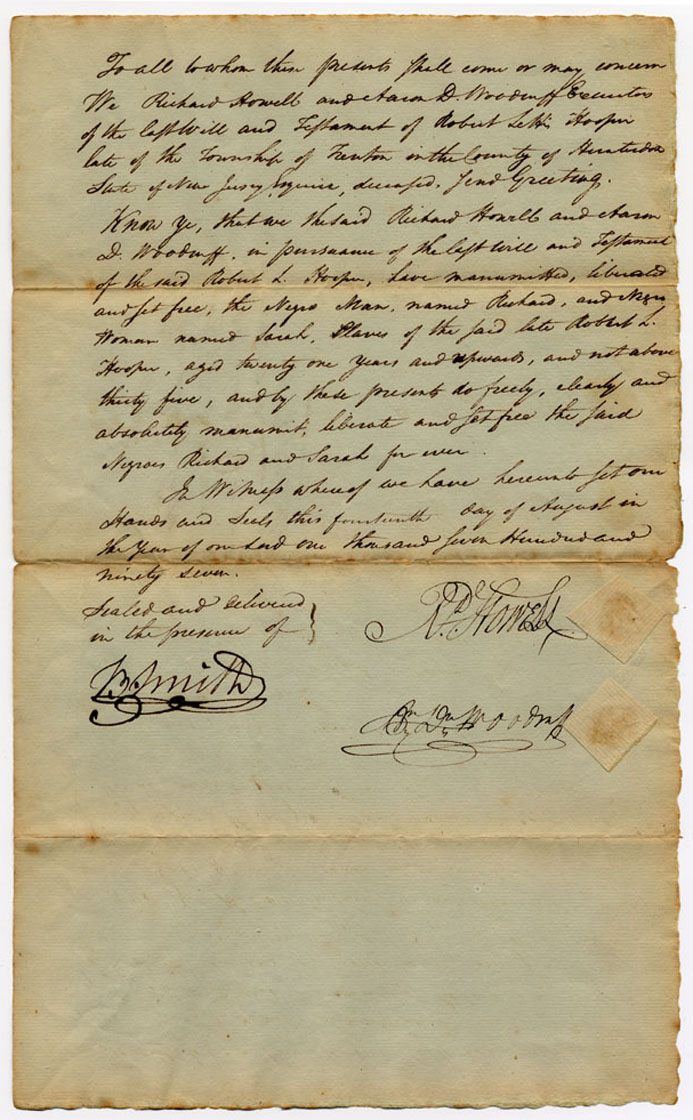 To all to whom these presents shall come or may concern
We Richard Howell and Aaron D. Woodruff Executors
of the last Will and Testament of Robert Lettis Hooper
late of the Township of Trenton in the County of Hunterdon
State of New Jersey Esquire, deceased, Send Greeting.
Know ye, that we the said Richard Howell and Aaron
D. Woodruff, in pursuance of the last Will and Testament
of the said Robert L. Hooper, have manumitted, liberated
and set free, the Negro Man, named Richard, and Negro
Woman named Sarah, Slaves of the said late Robert L.
Hooper, aged twenty one years and upwards, and not above
thirty five, and by these presents do freely, clearly and
absolutely manumit, liberate and set free the said
Negroes Richard and Sarah for ever.
In Witness whereof we have hereunto set our
Hands and Seals this fourteenth day of August in
the Year of our Lord one thousand seven Hundred and
ninety seven.
Sealed and delivered
in the presence of
Rd. Howell
Smith
Woodruff